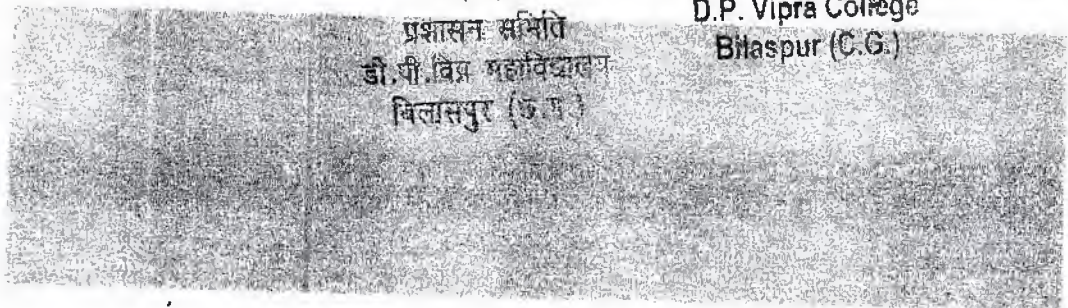 प्रशासन समिति
डी.पी.विप्र महाविद्यालय
बिलासपुर (छ.ग.)
D.P. Vipra College
Bilaspur (C.G.)